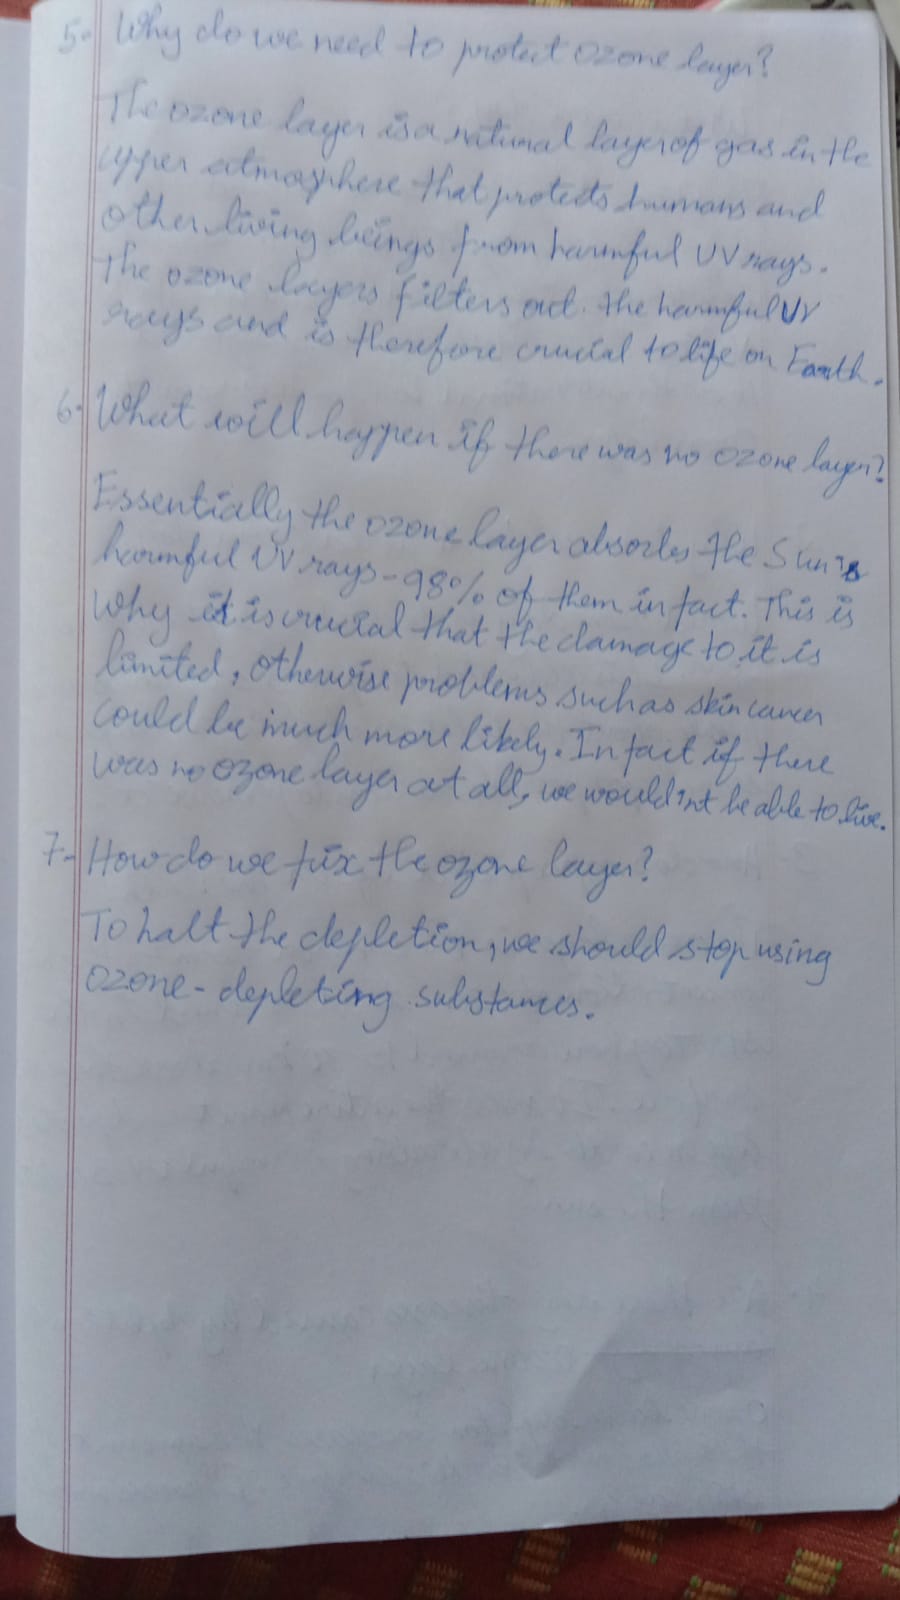 5- Why do we need to protect ozone layer?
The ozone layer is a natural layer of gas in the
upper atmosphere that protects humans and
other living beings from harmful UV rays.
The ozone layers filters out the harmful UV
rays and is therefore crucial to life on Earth.
6- What will happen if there was no ozone layer?
Essentially the ozone layer absorbs the Sun's
harmful UV rays - 98% of them in fact. This is
why it is crucial that the damage to it is
limited, otherwise problems such as skin cancer
could be much more likely. In fact if there
was no ozone layer at all, we would'nt be able to live.
7- How do we fix the ozone layer?
To halt the depletion, we should stop using
ozone-depleting substances.